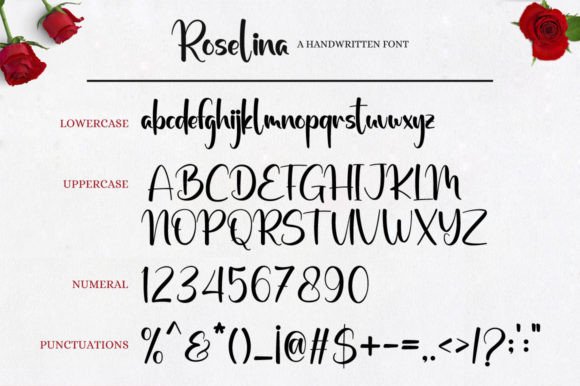 Roselina A HANDWRITTEN FONT
LOWERCASE abcdefghijklmnopqrstuvwxyz
UPPERCASE ABCDEFGHIJKLM
NOPQRSTUVWXYZ
NUMERAL 1234567890
PUNCTUATIONS %^&*()_!@#$+-=,.<>/?;:'"